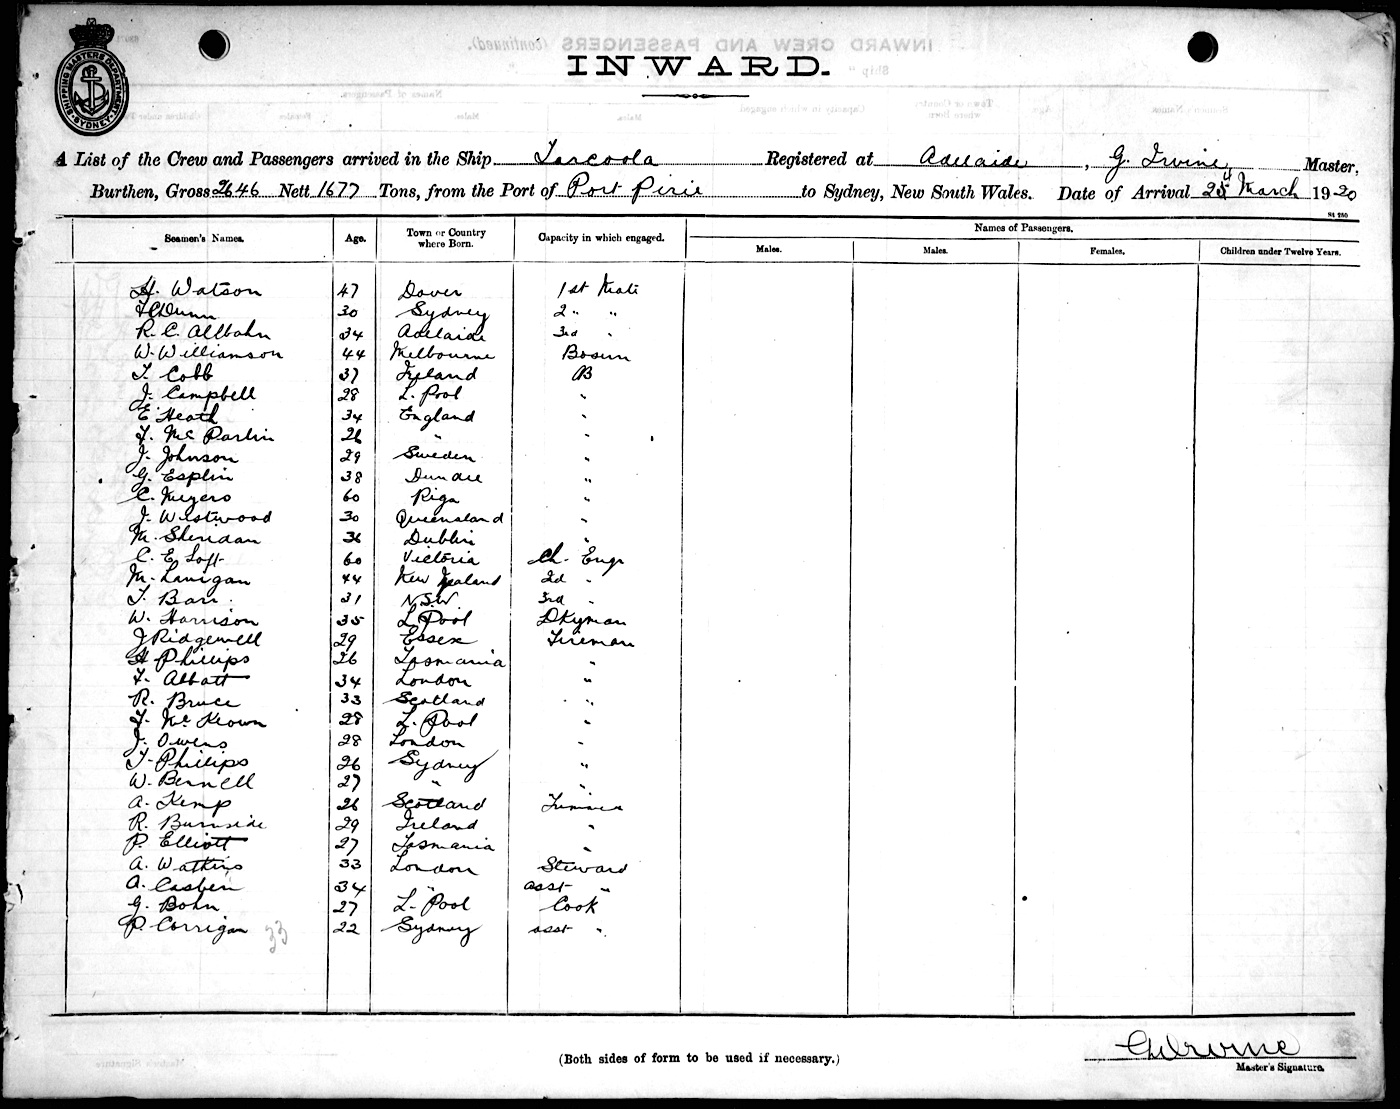 SHIPPING MASTERS DEPARTMENT SYDNEY
INWARD.
A List of the Crew and Passengers arrived in the Ship Tarcoola Registered at Adelaide, G. Irvine Master,
Burthen, Gross 2646 Nett 1677 Tons, from the Port of Port Pirie to Sydney, New South Wales. Date of Arrival 25 March 1920
Seamen's Names. Age. Town or Country where Born. Capacity in which engaged. Names of Passengers.
Males. Males. Females. Children under Twelve Years.
H. Watson 47 Dover 1st Mate
Dunn 30 Sydney 2 " "
R. C. Allbahn 34 Adelaide 3rd "
W. Williamson 44 Melbourne Bosun
T. Cobb 37 Ireland AB
J. Campbell 28 L. Pool "
E Heath 34 England "
T. McParlin 26 " "
J. Johnson 29 Sweden "
G. Esplin 38 Dundee "
C. Meyers 60 Riga "
J. Westwood 30 Queensland "
M. Sheridan 36 Dublin "
C. E Loft 60 Victoria Ch. Engr
M. Lanigan 44 New Zealand 2d "
T. Barr 31 N.S.W 3rd "
W. Harrison 35 L. Pool Dkyman
J Ridgewell 29 Essex Fireman
H Phillips 26 Tasmania "
T. Abbott 34 London "
R. Bruce 33 Scotland "
T. McKeown 28 L. Pool "
J. Owens 28 London "
T. Phillips 26 Sydney "
W. Bennell 27 " "
A. Kemp 26 Scotland Trimmer
R. Burnside 29 Ireland "
P. Elliott 27 Tasmania "
A. Watkins 33 London Steward
A. Casben 34 " asst "
G. Bohn 27 L. Pool Cook
P. Corrigan 22 Sydney asst "
33
(Both sides of form to be used if necessary.)
G Irvine
Master's Signature.